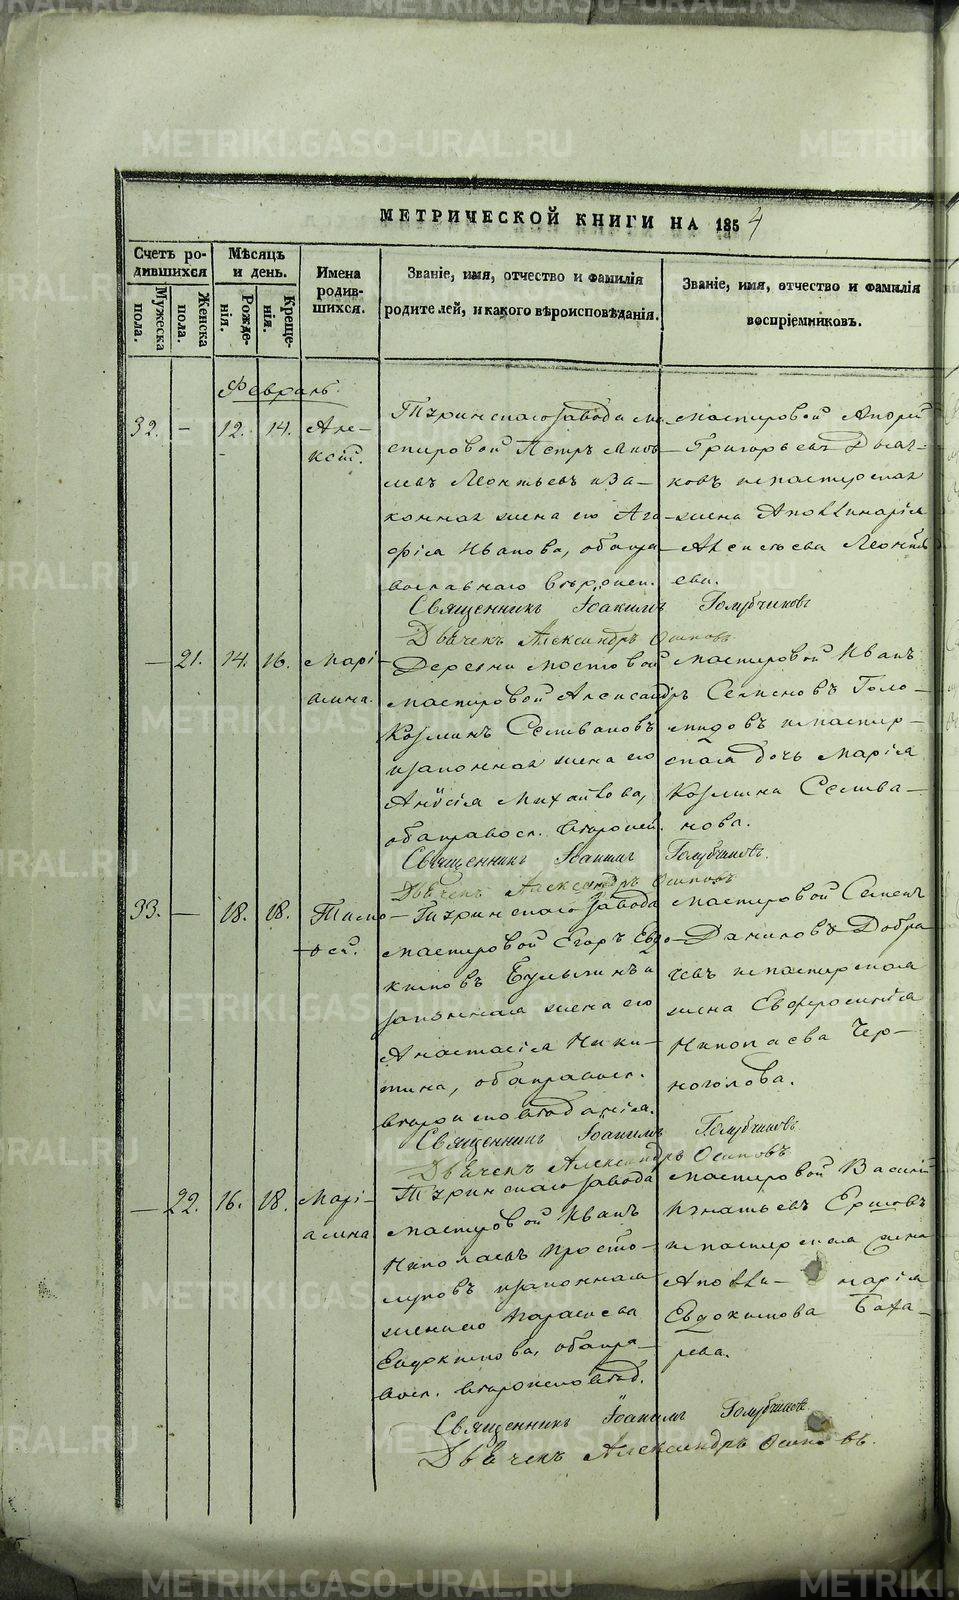 МЕТРИЧЕСКОЙ КНИГИ НА 1854
Счетъ родившихся
Мужеска пола.
Женска пола.
Мѣсяцъ и день.
Рожденія.
Крещенія.
Имена родившихся.
Званіе, имя, отчество и фамилія
родителей, и какого вѣроисповѣданія.
Званіе, имя, отчество и фамилія
воспріемниковъ.
Февраль.
32. – 12. 14. Але-
ксій.
Туринскаго завода ма-
стировой Петръ Яков-
левъ Леонтьевъ и за-
конная жена его Ага-
фія Иванова, оба пра-
вославнаго вѣроисп.
мастировой Андрей
Григорьевъ
ковъ и мастирская
жена Аполлинарія
Алексѣева Леонтьева.
Священникъ Іоакимъ Голубчиковъ
Дьячекъ Александръ Осиповъ
– 21. 14. 16. Марі-
амна.
Деревни Мостовой
мастировой Александръ
Козминъ Селивановъ
и законная жена его
Анисія Михайлова,
оба правосл. вѣроисп.
мастировой Иванъ
Семеновъ Голо-
мидовъ и мастир-
ская дочь Марія
Козмина Селива-
нова.
Священникъ Іоакимъ Голубчиковъ.
Дьячекъ Александръ Осиповъ
33. – 18. 18. Тимо-
ѳей.
Туринскаго завода
мастировой Егоръ Евдо-
кимовъ Булыгинъ и
законная жена его
Анастасія Ники-
тина, оба правосл.
вѣроисповѣданія.
мастировой Семенъ
Даниловъ Добры-
чевъ и мастирская
жена Евфросинія
Николаева Чер-
ноголова.
Священникъ Іоакимъ Голубчиковъ
Дьячекъ Александръ Осиповъ
– 22. 16. 18. Марі-
амна
Туринскаго завода
мастировой Иванъ
Николаевъ Просто-
луповъ и законная
жена его Параскева
Евдокимова, оба пра-
восл. вѣроисповѣд.
мастировой Василій
Игнатьевъ Ершовъ
и мастирская жена
Аполли- нарія
Евдокимова Баха-
рева.
Священникъ Іоакимъ Голубчиковъ
Дьячекъ Александръ Осиповъ.
METRIKI.GASO-URAL.RU